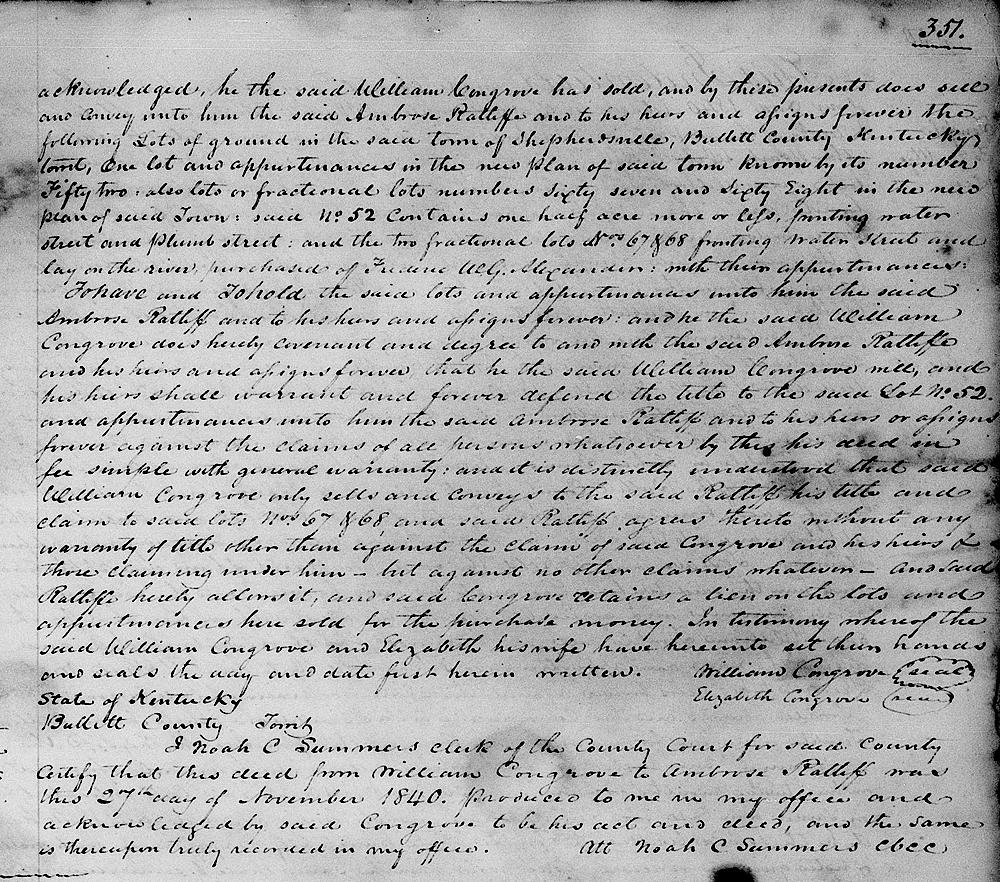 351.
acknowledged, he the said William Congrove has sold, and by these presents does sell
and convey unto him the said Ambrose Ratliffe and to his heirs and assigns forever the
following Lots of ground in the said town of Shepherdsville, Bullett County Kentucky
towit, One lot and appurtenances in the new plan of said town known by its number
Fifty two: also lots or fractional lots numbers sixty seven and sixty Eight in the new
plan of said Town: said No 52 Contains one half acre more or less, fronting water
street and plumb street: and the two fractional lots Nos 67 & 68 fronting water street and
lay on the river, purchased of Frederic W G. Alexander: with their appurtinances:
To have and To hold the said lots and appurtinances unto him the said
Ambrose Ratliff and to his heirs and assigns forever: and he the said William
Congrove does hereby covenant and degree to and with the said Ambrose Ratliffe
and his heirs and assigns forever that he the said William Congrove will, and
his heirs shall warrant and forever defend the title to the said Lot No 52.
and appurtinances unto him the said Ambrose Ratliff and to his heirs or assigns
forever against the claims of all persons whatsoever by this his deed in
fee simple with general warranty: and it is distinctly understood that said
William Congrove only sells and conveys to the said Ratliff his title and
claim to said lots Nos 67 & 68 and said Ratliff agrees thereto without any
warranty of title other than against the claim of said Congrove and his heirs &
those claiming under him – but against no other claims whatever – and said
Ratliffe hereby allows it, and said Congrove retains a lien on the lots and
appurtinances here sold for the purchase money. In testimony whereof the
said William Congrove and Elizabeth his wife have hereunto set their hands
and seals the day and date first herein written. William Congrove (seal)
State of Kentucky Elizabeth Congrove (seal)
Bullett County Towit
I Noah C Summers clerk of the County Court for said County
Certify that this deed from William Congrove to Ambrose Ratliff was
this 27th day of November 1840. produced to me in my office and
acknowledged by said Congrove to be his act and deed, and the same
is thereupon truly recorded in my office. Att Noah C Summers cbcc